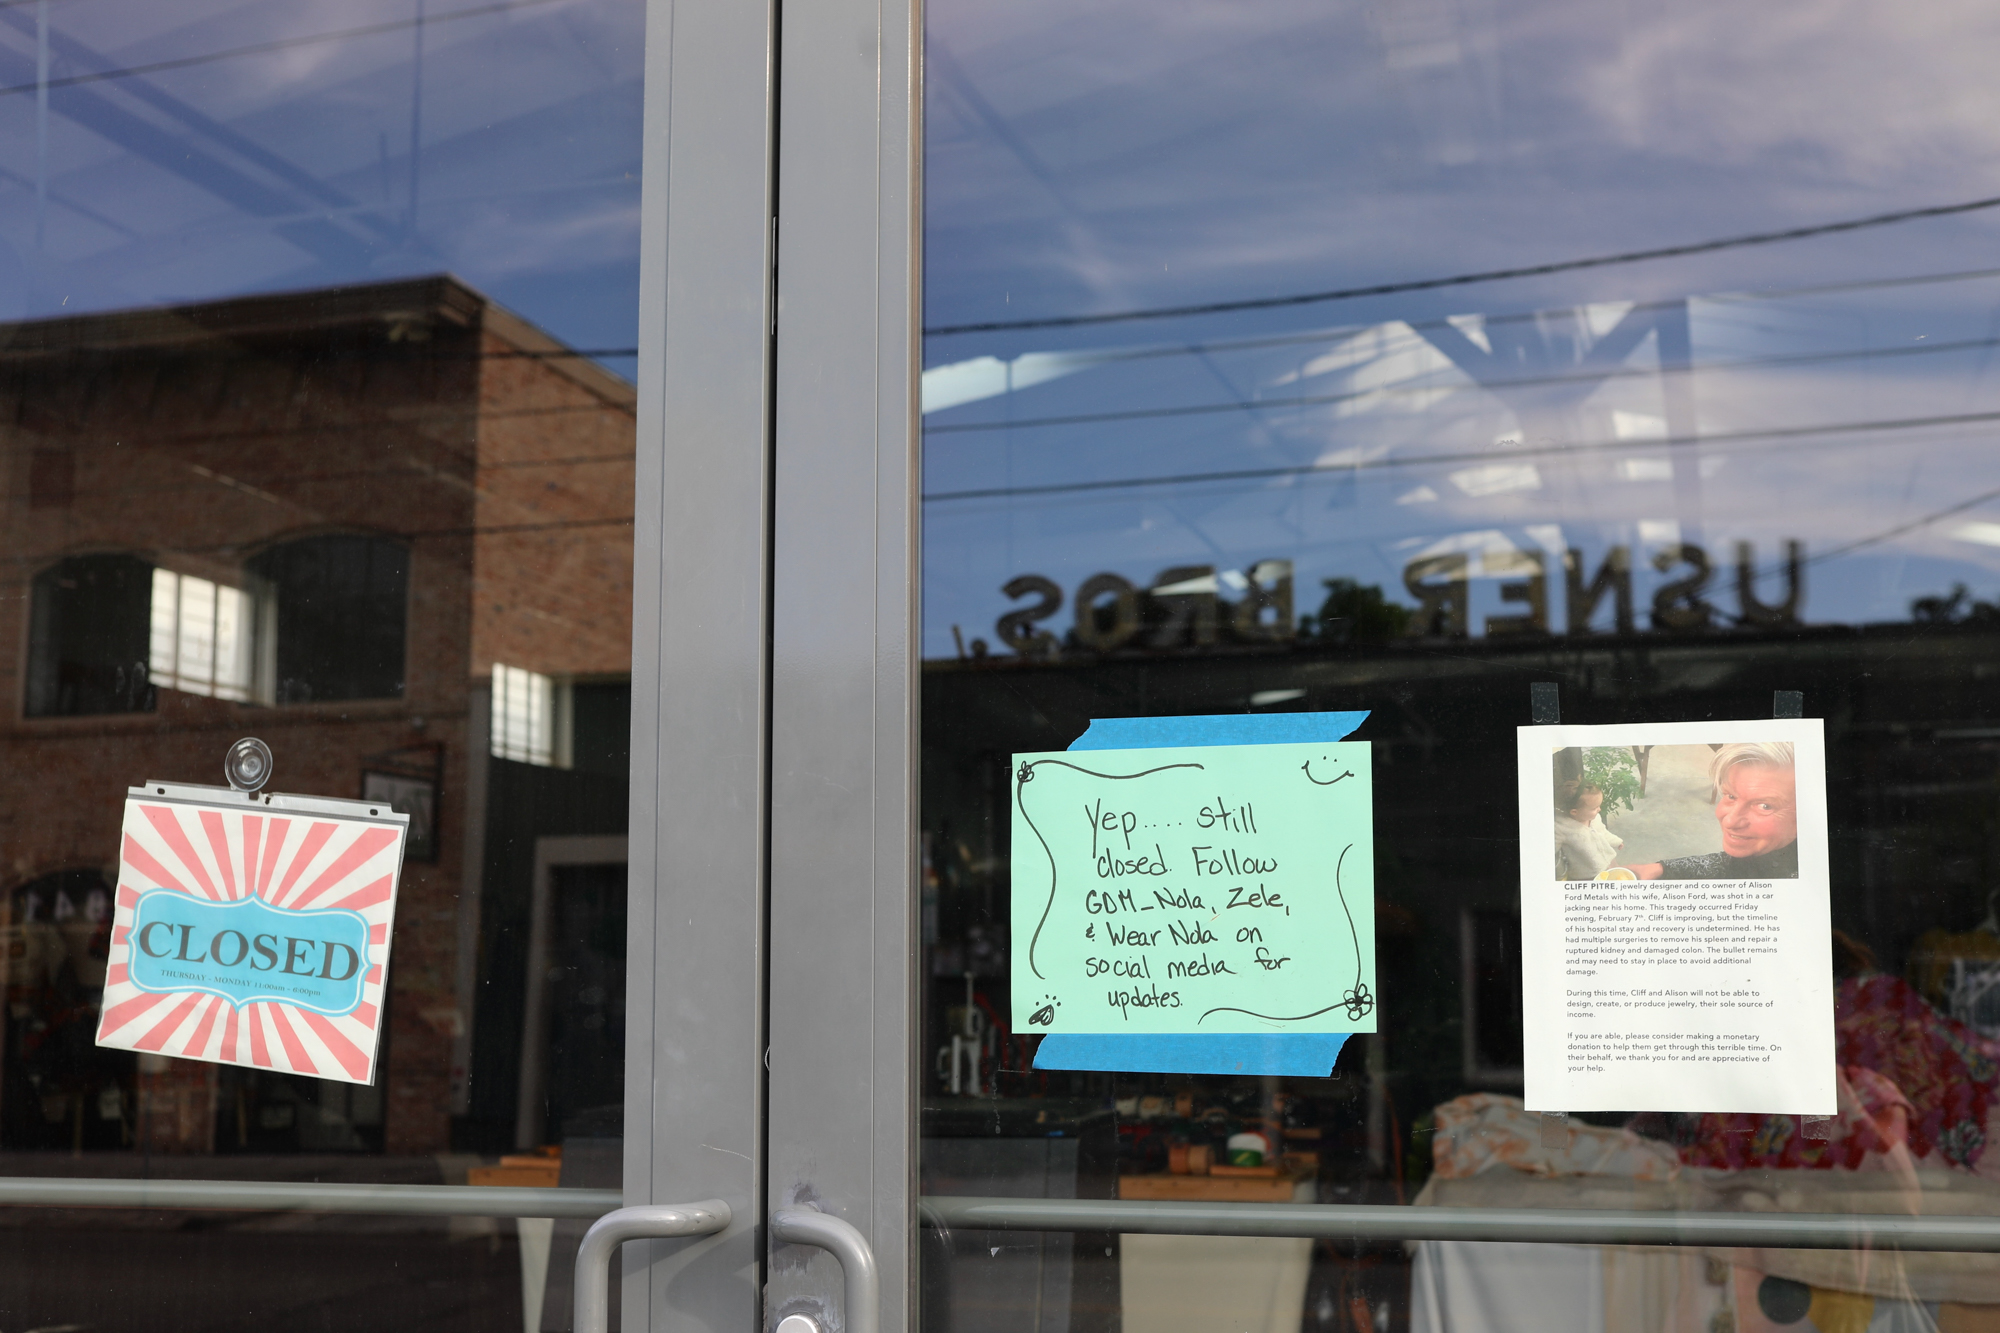 USNER BROS.
CLOSED
THURSDAY - MONDAY 11:00am - 6:00pm
Yep.... still
closed. Follow
GDM_Nola, Zele,
& Wear Nola on
social media for
updates.
CLIFF PITRE, jewelry designer and co owner of Alison
Ford Metals with his wife, Alison Ford, was shot in a car
jacking near his home. This tragedy occurred Friday
evening, February 7th. Cliff is improving, but the timeline
of his hospital stay and recovery is undetermined. He has
had multiple surgeries to remove his spleen and repair a
ruptured kidney and damaged colon. The bullet remains
and may need to stay in place to avoid additional
damage.
During this time, Cliff and Alison will not be able to
design, create, or produce jewelry, their sole source of
income.
If you are able, please consider making a monetary
donation to help them get through this terrible time. On
their behalf, we thank you for and are appreciative of
your help.